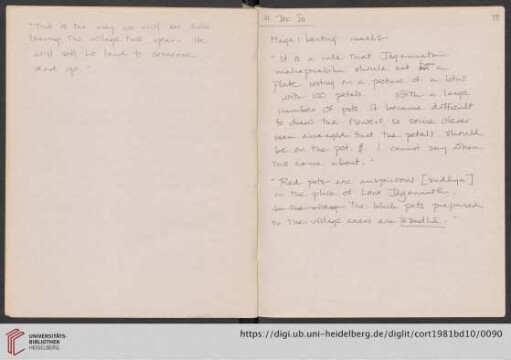 "This is the way we will see him
leaving the village this year. He
will sell his land to someone
and go."
11 Dec 80
88
Maga: beating marks
"It is a rule that Jagannath
mahaprasad should eat from a
plate resting on a picture of a lotus
with 100 petals. With a large
number of pots it became difficult
to draw the flowers, so some clever
man arranged that the petals should
be on the pot. I cannot say when
this came about."
"Red pots are auspicious [sudhya]
in the place of Lord Jagannath.
The black pots prepared
in the village areas are asudha."
https://digi.ub.uni-heidelberg.de/diglit/cort1981bd10/0090
UNIVERSITÄTS-
BIBLIOTHEK
HEIDELBERG